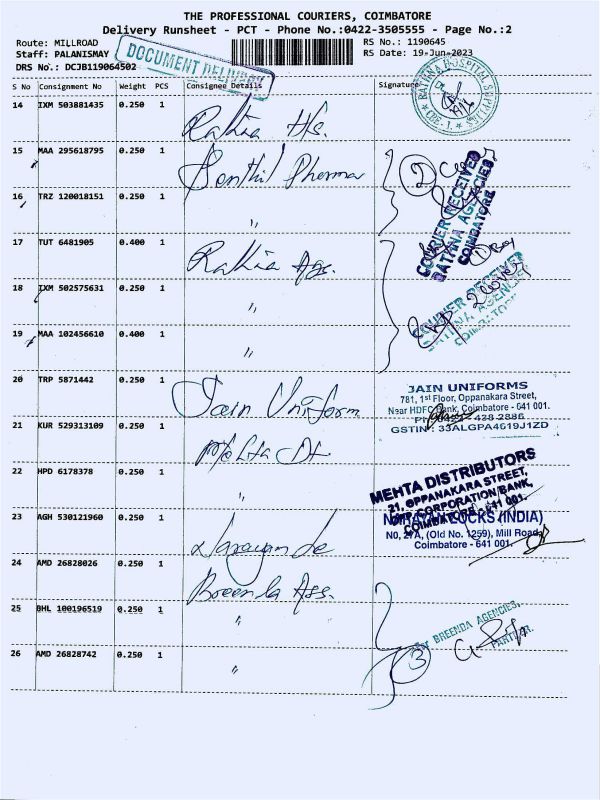 THE PROFESSIONAL COURIERS, COIMBATORE
Delivery Runsheet - PCT - Phone No.:0422-3505555 - Page No.:2
Route: MILLROAD
RS No.: 1190645
Staff: PALANISMAY
RS Date: 19-Jun-2023
DRS No.: DCJB119064502
DOCUMENT DELIVERY
S No Consignment No Weight PCS Consignee Details Signature
14 IXM 503881435 0.250 1
Rathna Hs.
15 MAA 295618795 0.250 1
Senthil Pharma
16 TRZ 120018151 0.250 1
"
COURIER RECEIVED
RATANA AGENCIES
COIMBATORE
17 TUT 6481905 0.400 1
Rathna Ags.
18 IXM 502575631 0.250 1
"
2 Cover
COURIER RECEIVED
RATANA AGENCIES
COIMBATORE
19 MAA 102456610 0.400 1
"
20 TRP 5871442 0.250 1
Jain Uniform
JAIN UNIFORMS
781, 1st Floor, Oppanakara Street,
Near HDFC Bank, Coimbatore - 641 001.
428 2886
GSTIN : 33ALGPA4619J1ZD
21 KUR 529313109 0.250 1
22 HPD 6178378 0.250 1
"
MEHTA DISTRIBUTORS
21, OPPANAKARA STREET,
CORPORATION BANK,
COIMBATORE - 641 001.
23 AGH 530121960 0.250 1
Narayan
LOCKS (INDIA)
(Old No. 1259), Mill Road,
Coimbatore - 641 001.
24 AMD 26828026 0.250 1
Breenda Ass.
25 BHL 100196519 0.250 1
"
BREENDA AGENCIES,
PARTNER.
26 AMD 26828742 0.250 1
"
3